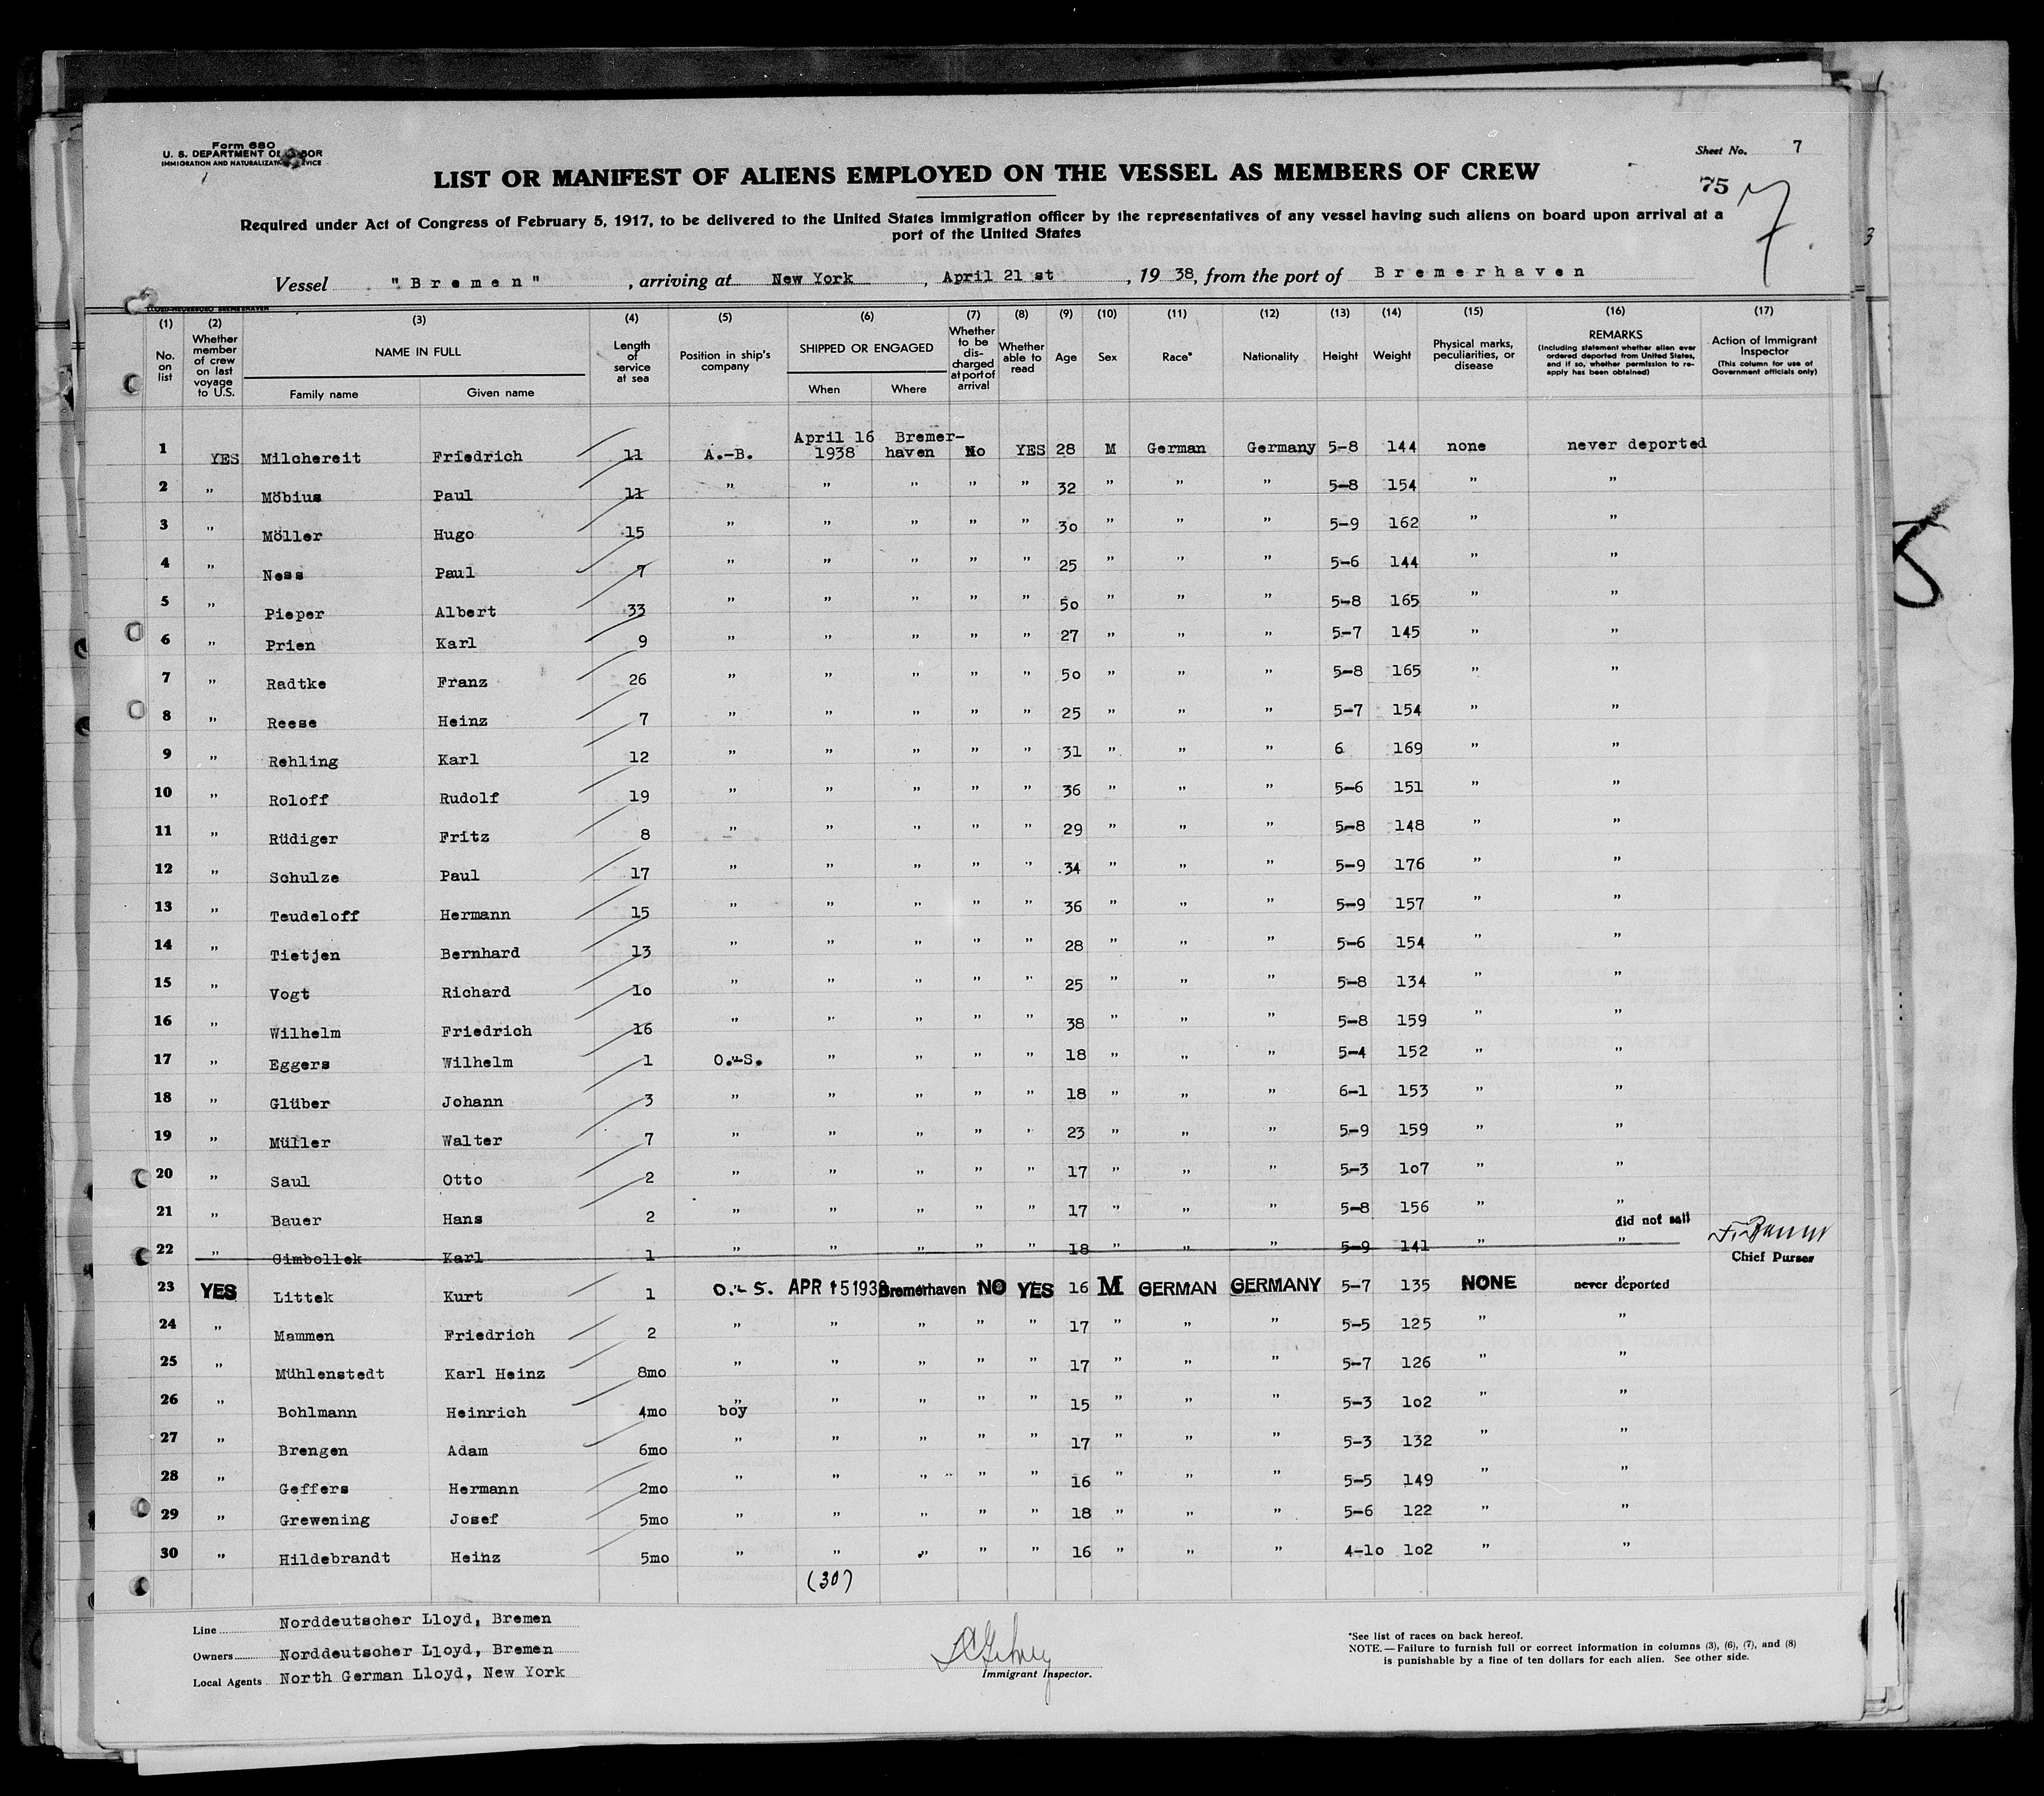 Form 680
U. S. DEPARTMENT OF LABOR
IMMIGRATION AND NATURALIZATION SERVICE
Sheet No. 7
LIST OR MANIFEST OF ALIENS EMPLOYED ON THE VESSEL AS MEMBERS OF CREW
75 7
Required under Act of Congress of February 5, 1917, to be delivered to the United States immigration officer by the representatives of any vessel having such aliens on board upon arrival at a
port of the United States
Vessel "Bremen", arriving at New York, April 21 st, 19 38, from the port of Bremerhaven
(1) No. on list
(2) Whether member of crew on last voyage to U.S.
(3) NAME IN FULL Family name Given name
(4) Length of service at sea
(5) Position in ship's company
(6) SHIPPED OR ENGAGED When Where
(7) Whether to be discharged at port of arrival
(8) Whether able to read
(9) Age
(10) Sex
(11) Race*
(12) Nationality
(13) Height
(14) Weight
(15) Physical marks, peculiarities, or disease
(16) REMARKS (Including statement whether alien ever ordered deported from United States, and if so, whether permission to re-apply has been obtained)
(17) Action of Immigrant Inspector (This column for use of Government officials only)
1 YES Milchereit Friedrich 11 A.-B. April 16 1938 Bremer-haven No YES 28 M German Germany 5-8 144 none never deported
2 " Möbius Paul 11 " " " " " 32 " " " 5-8 154 " "
3 " Möller Hugo 15 " " " " " 30 " " " 5-9 162 " "
4 " Ness Paul 7 " " " " " 25 " " " 5-6 144 " "
5 " Pieper Albert 33 " " " " " 50 " " " 5-8 165 " "
6 " Prien Karl 9 " " " " " 27 " " " 5-7 145 " "
7 " Radtke Franz 26 " " " " " 50 " " " 5-8 165 " "
8 " Reese Heinz 7 " " " " " 25 " " " 5-7 154 " "
9 " Rehling Karl 12 " " " " " 31 " " " 6 169 " "
10 " Roloff Rudolf 19 " " " " " 36 " " " 5-6 151 " "
11 " Rüdiger Fritz 8 " " " " " 29 " " " 5-8 148 " "
12 " Schulze Paul 17 " " " " " 34 " " " 5-9 176 " "
13 " Teudeloff Hermann 15 " " " " " 36 " " " 5-9 157 " "
14 " Tietjen Bernhard 13 " " " " " 28 " " " 5-6 154 " "
15 " Vogt Richard 10 " " " " " 25 " " " 5-8 134 " "
16 " Wilhelm Friedrich 16 " " " " " 38 " " " 5-8 159 " "
17 " Eggers Wilhelm 1 O.-S. " " " " 18 " " " 5-4 152 " "
18 " Glüber Johann 3 " " " " " 18 " " " 6-1 153 " "
19 " Müller Walter 7 " " " " " 23 " " " 5-9 159 " "
20 " Saul Otto 2 " " " " " 17 " " " 5-3 107 " "
21 " Bauer Hans 2 " " " " " 17 " " " 5-8 156 " "
did not sail
22 " Gimbollek Karl 1 " " " " " 18 " " " 5-9 141 " "
Chief Purser
23 YES Littek Kurt 1 O.-S. APR 15 1938 Bremerhaven NO YES 16 M GERMAN GERMANY 5-7 135 NONE never deported
24 " Mammen Friedrich 2 " " " " " 17 " " " 5-5 125 " "
25 " Mühlenstedt Karl Heinz 8mo " " " " " 17 " " " 5-7 126 " "
26 " Bohlmann Heinrich 4mo boy " " " " 15 " " " 5-3 102 " "
27 " Brengen Adam 6mo " " " " " 17 " " " 5-3 132 " "
28 " Geffers Hermann 2mo " " " " " 16 " " " 5-5 149 " "
29 " Grewening Josef 5mo " " " " " 18 " " " 5-6 122 " "
30 " Hildebrandt Heinz 5mo " " " " " 16 " " " 4-10 102 " "
(30)
Line Norddeutscher Lloyd, Bremen
Owners Norddeutscher Lloyd, Bremen
Local Agents North German Lloyd, New York
Immigrant Inspector.
*See list of races on back hereof.
NOTE.—Failure to furnish full or correct information in columns (3), (6), (7), and (8)
is punishable by a fine of ten dollars for each alien. See other side.